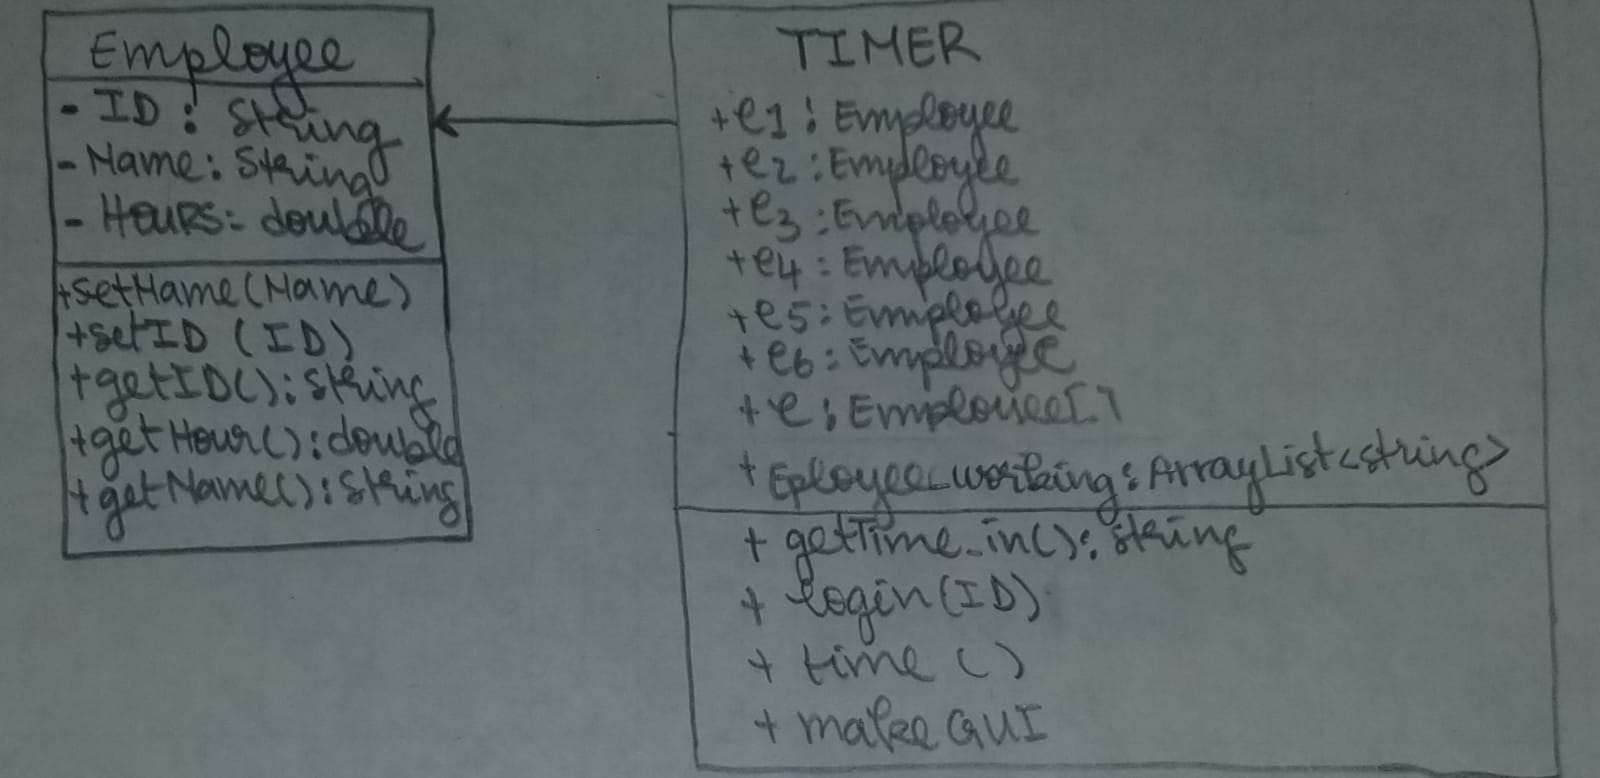 Employee
- ID : String
- Name: String
- HOURS: double
+setName(Name)
+setID (ID)
+getID(): String
+getHour(): double
+getName(): String
TIMER
+e1 : Employee
+e2 : Employee
+e3 : Employee
+e4 : Employee
+e5 : Employee
+e6 : Employee
+e : Employee[]
+ Eployee_working : ArrayList<string>
+ getTime_in(): String
+ login(ID)
+ time ()
+ make GUI